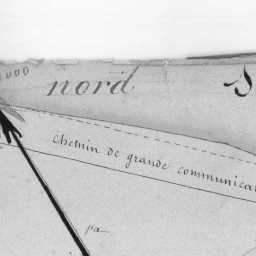 1000
nord S
Chemin de grande communica
pa